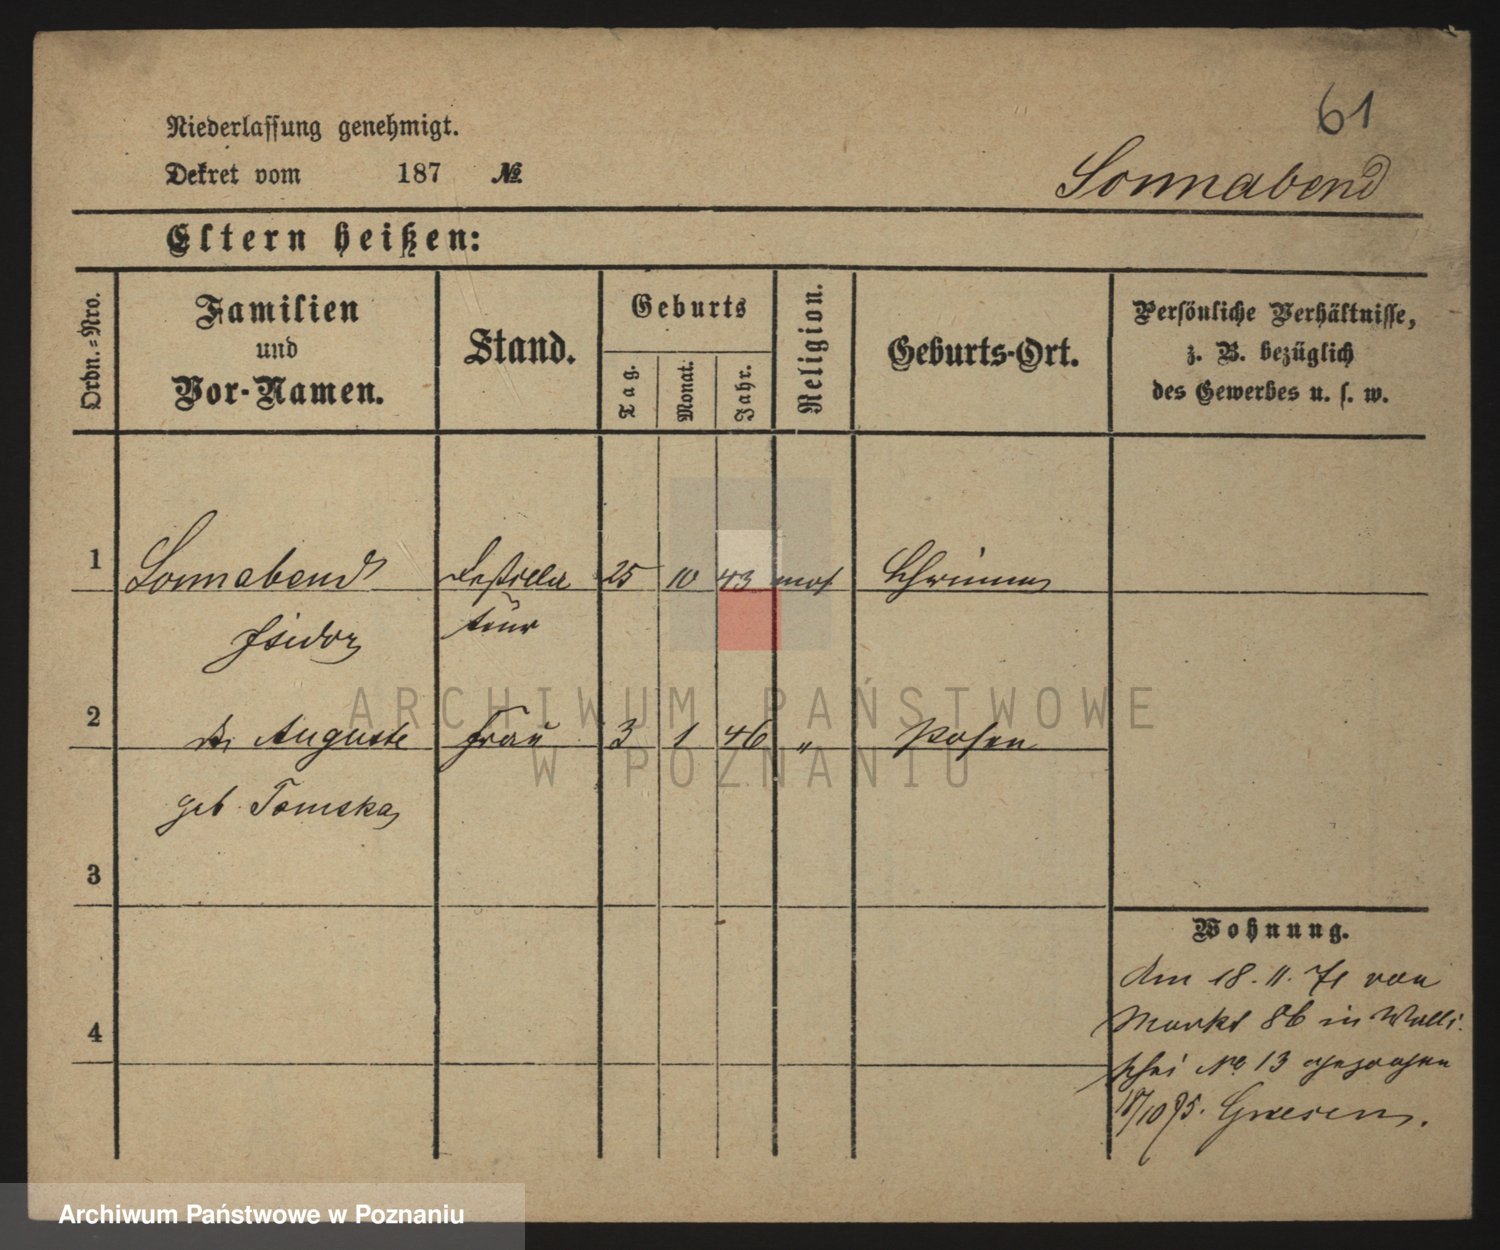 61
Niederlassung genehmigt.
Dekret vom 187 №
Sonnabend
Eltern heißen:
Ordn.=Nro.
Familien
und
Vor-Namen.
Stand.
Geburts
Tag.
Monat.
Jahr.
Religion.
Geburts-Ort.
Persönliche Verhältnisse,
z. B. bezüglich
des Gewerbes u. s. w.
1 Sonnabend Destilla 25 10 43 mos Schrimm
Isidor teur
2 Auguste Frau 3 1 46 " Posen
geb Tomska
3
4
Wohnung.
Am 18. 11. 71 von
Markt 86 in Walli
schei No 13 gezogen
18/10 75. Gnesen.
ARCHIWUM PAŃSTWOWE
W POZNANIU
Archiwum Państwowe w Poznaniu